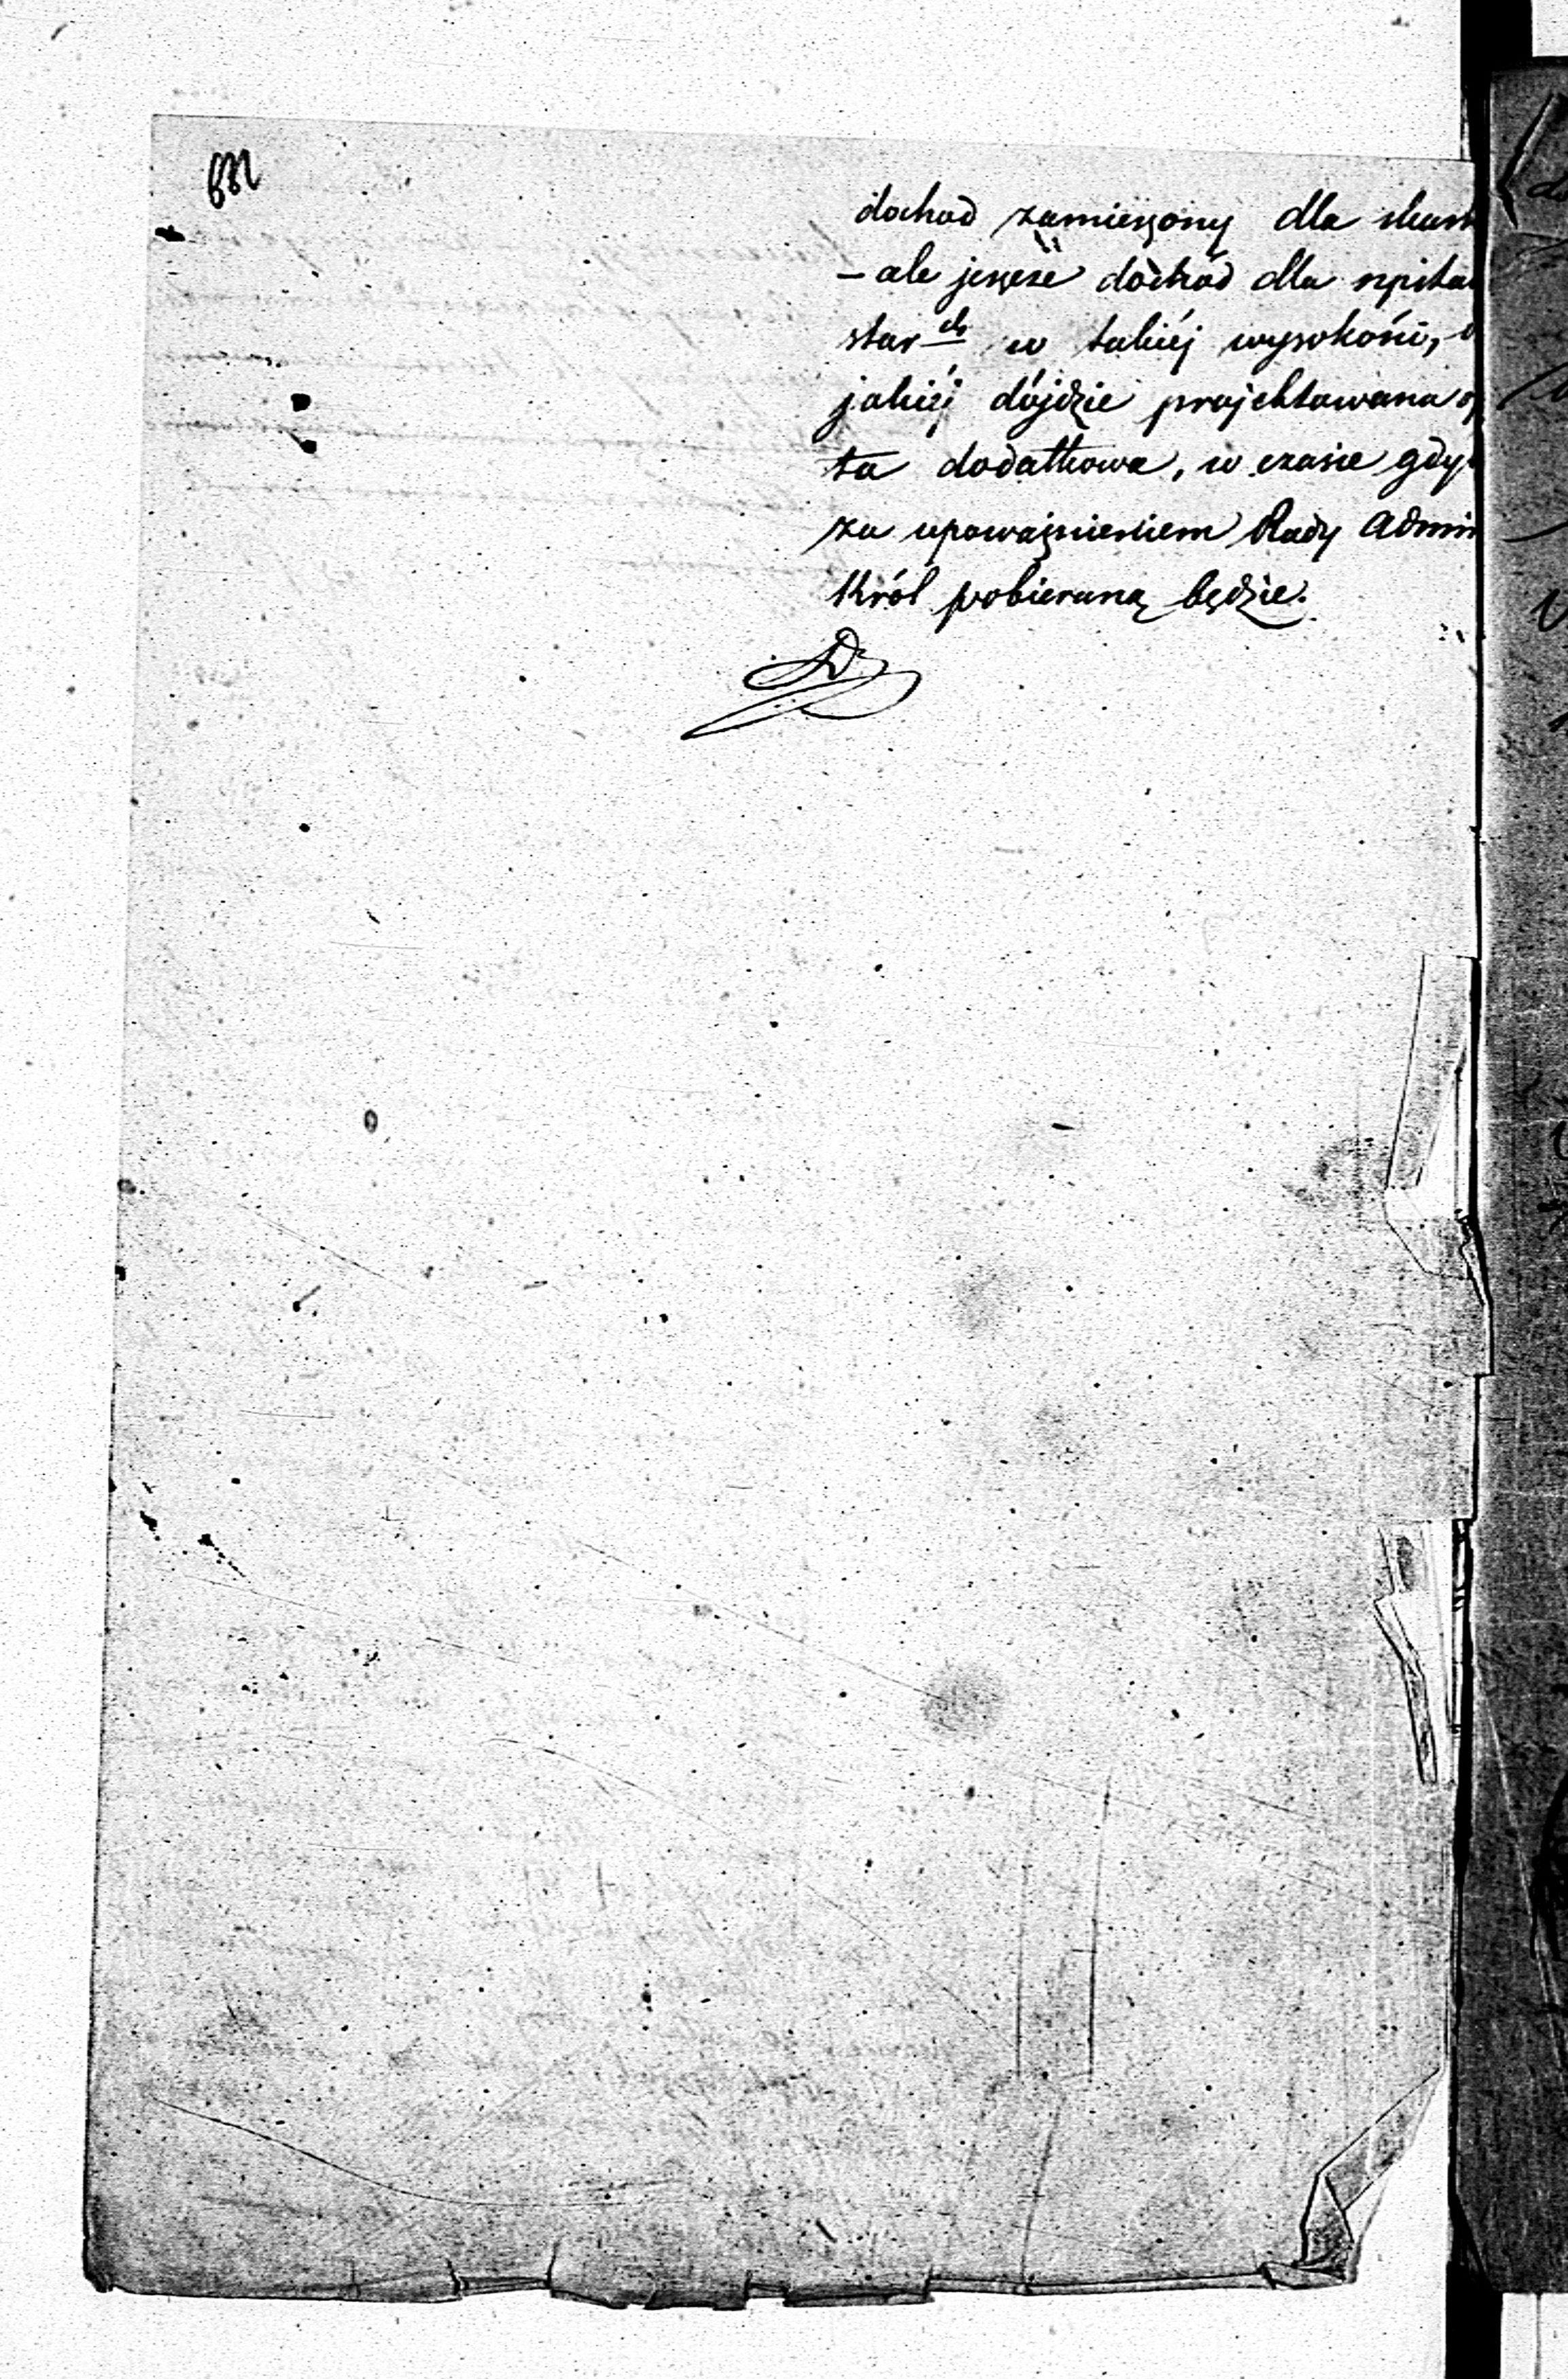 dochod zamierzony dla skar
– ale jeszcze dochód dla szpita
star ch w takiéj wysokości,
jakiéj dójdzie projektowana o
ta dodatkowa, w czasie gdy
za upoważnieniem Rady Admin
Król pobieraną będzie.